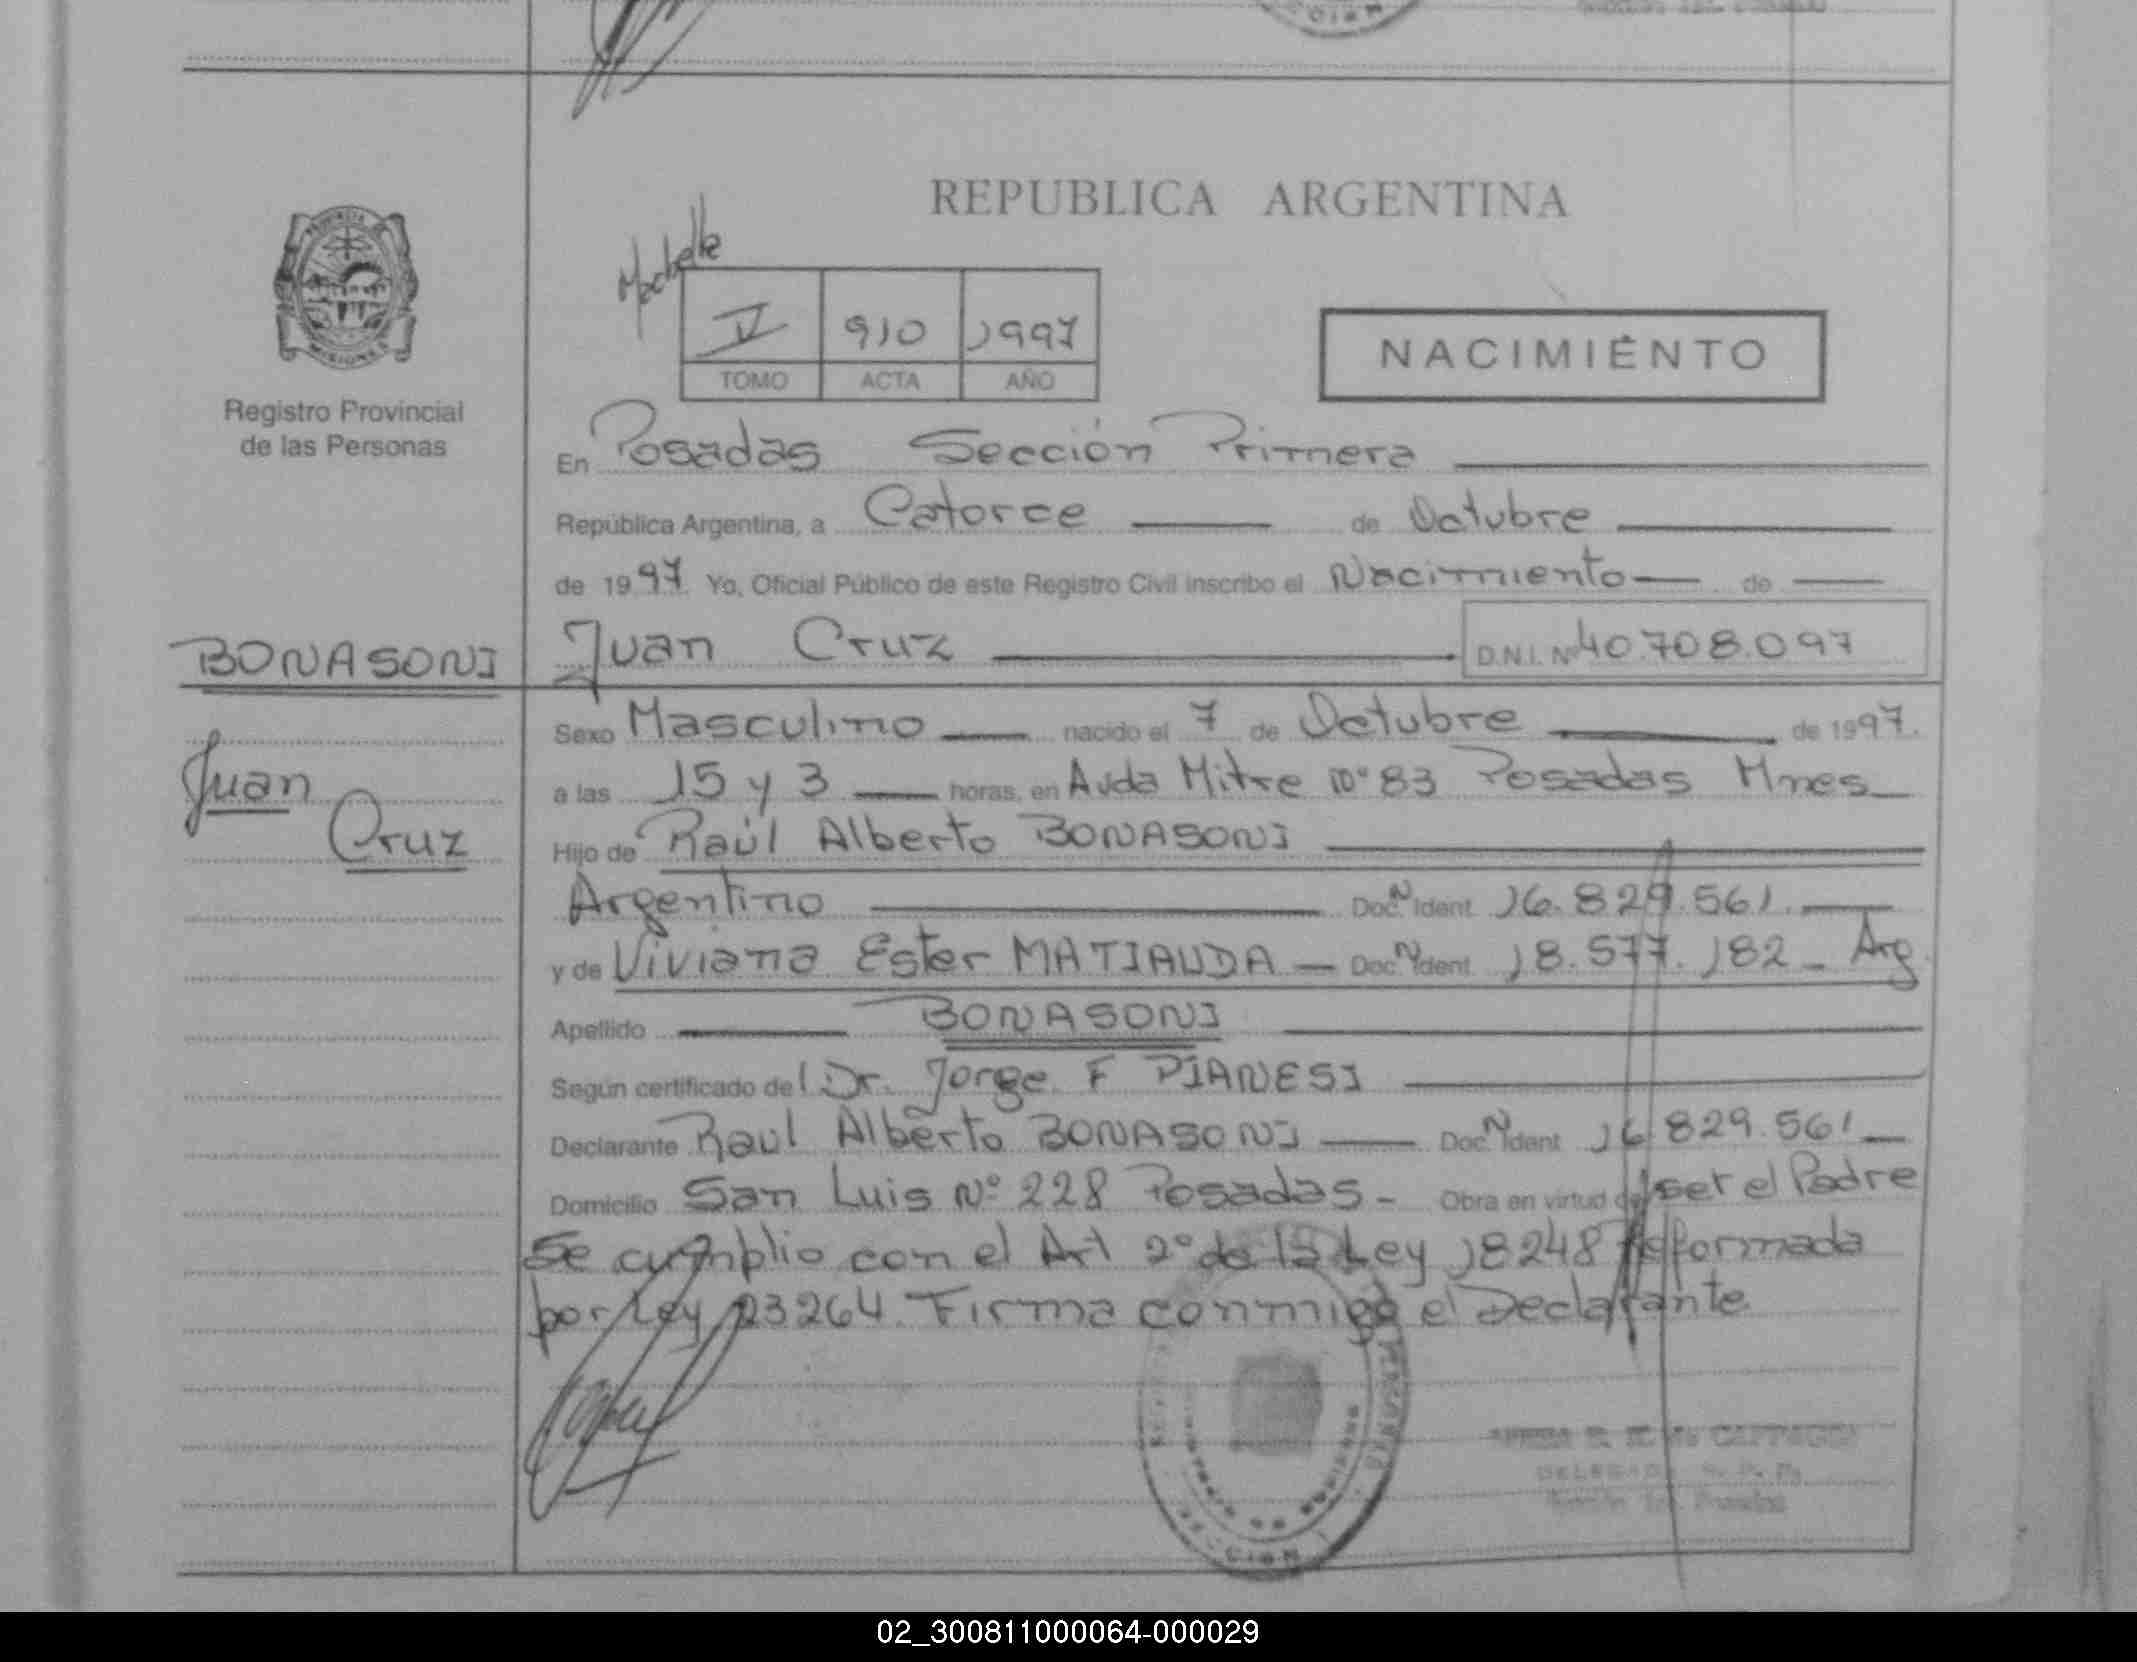 REPUBLICA ARGENTINA
PROVINCIA
MISIONES
Registro Provincial
de las Personas
IV 910 1997
TOMO ACTA AÑO
NACIMIENTO
En Posadas Sección Primera
República Argentina, a Catorce de Octubre
de 1997. Yo, Oficial Público de este Registro Civil inscribo el Nacimiento de
BONASONI Juan Cruz D.N.I. Nº 40.708.097
Sexo Masculino nacido el 7 de Octubre de 1997.
Juan
Cruz
a las 15 y 3 horas, en Avda Mitre Nº 83 Posadas Mnes
Hijo de Raúl Alberto BONASONI
Argentino Doc. N Ident 16.829.561.
y de Viviana Ester MATIAUDA Doc. N Ident 18.577.182 Arg
Apellido BONASONI
Según certificado del Dr. Jorge F PIANESI
Declarante Raul Alberto BONASONI Doc. N Ident 16.829.561
Domicilio San Luis Nº 228 Posadas - Obra en virtud de ser el Padre
Se cumplio con el Art 2º de la Ley 18248 Reformada
por Ley 23264. Firma conmigo el Declarante
SECCION
02_300811000064-000029